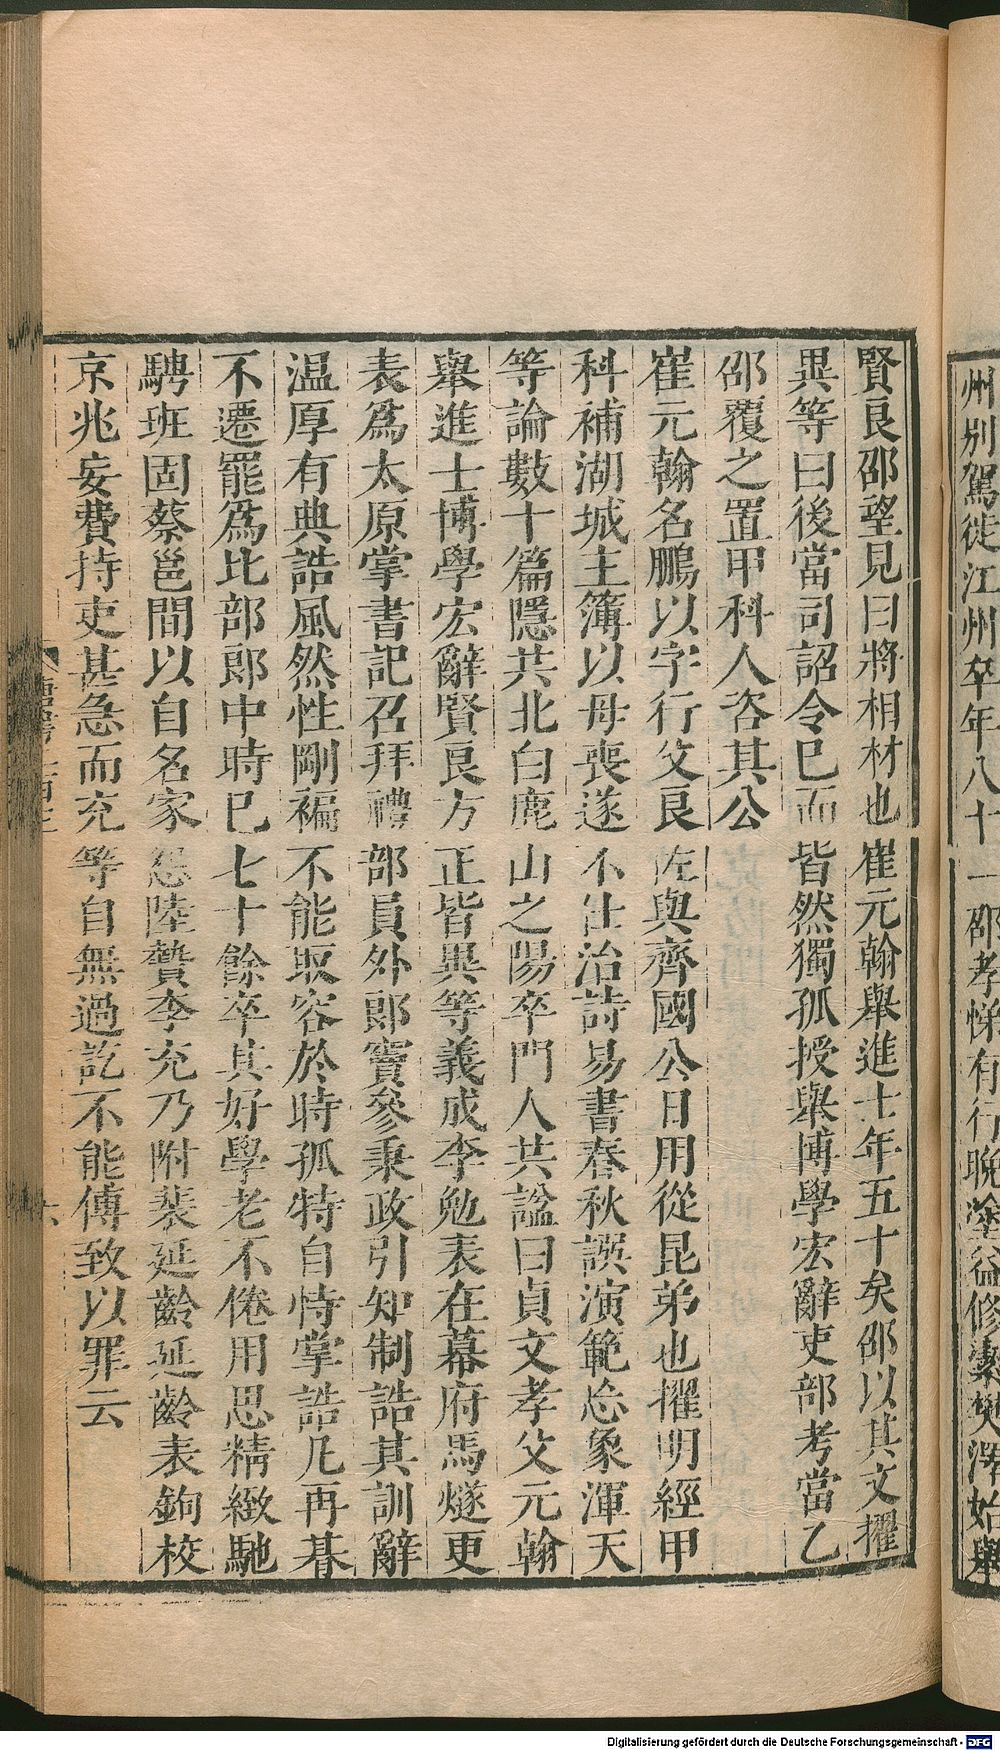 州別駕徙江州卒年八十一邵孝悌有行晚塗益修潔樊澤始舉
賢良邵望見曰將相材也崔元翰舉進士年五十矣邵以其文擢
異等曰後當司詔令已而皆然獨孤授舉博學宏辭吏部考當乙
邵覆之置甲科人咨其公
崔元翰名鵬以字行父良佐與齊國公日用從昆弟也擢明經甲
科補湖城主簿以母喪遂不仕治詩易書春秋譔演範忘象渾天
等論數十篇隱共北白鹿山之陽卒門人共諡曰貞文孝父元翰
舉進士博學宏辭賢良方正皆異等義成李勉表在幕府馬燧更
表爲太原掌書記召拜禮部員外郎竇參秉政引知制誥其訓辭
温厚有典誥風然性剛褊不能取容於時孤特自恃掌誥凡再朞
不遷罷爲比部郎中時已七十餘卒其好學老不倦用思精緻馳
騁班固蔡邕間以自名家怨陸贄李充乃附裴延齡延齡表鉤校
京兆妄費持吏甚急而充等自無過訖不能傅致以罪云
六
Digitalisierung gefördert durch die Deutsche Forschungsgemeinschaft - DFG